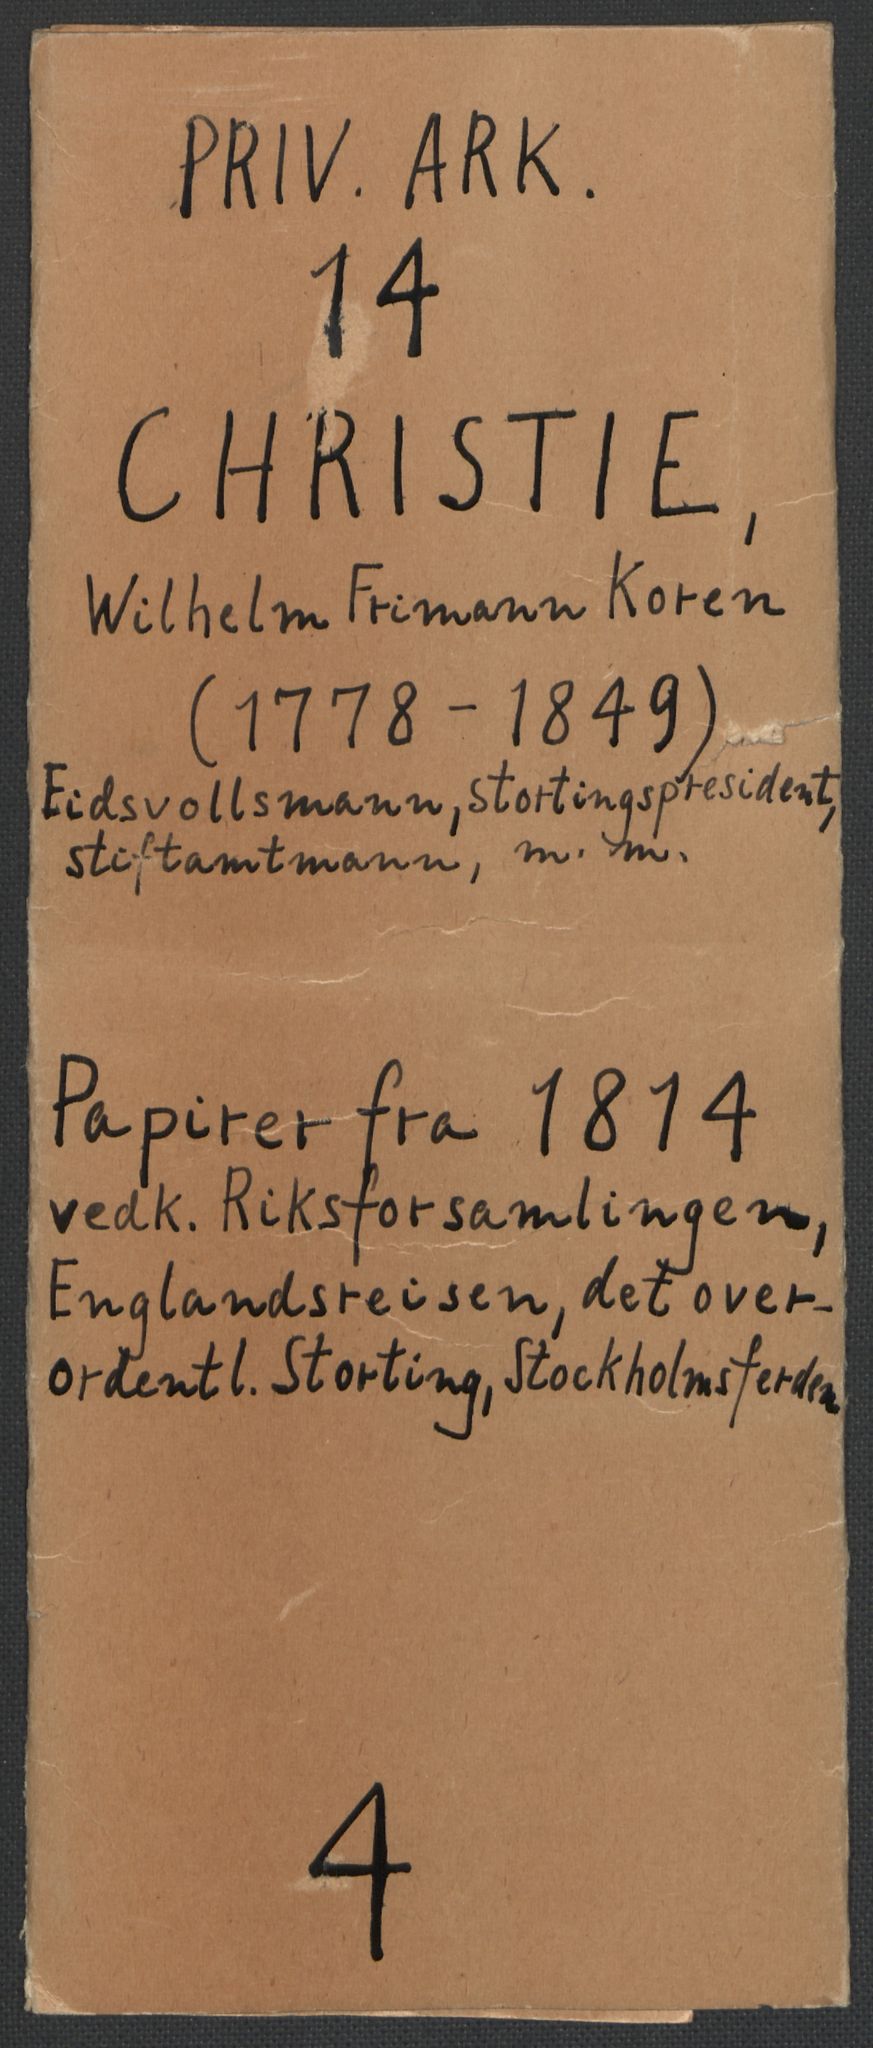 PRIV. ARK.
14
CHRISTIE,
Wilhelm Frimann Koren
(1778-1849)
Eidsvollsmann, stortingspresident,
stiftamtmann, m.m.
Papirer fra 1814
vedk. Riksforsamlingen,
Englandsreisen, det over-
ordentl. Storting, Stockholmsferden
4